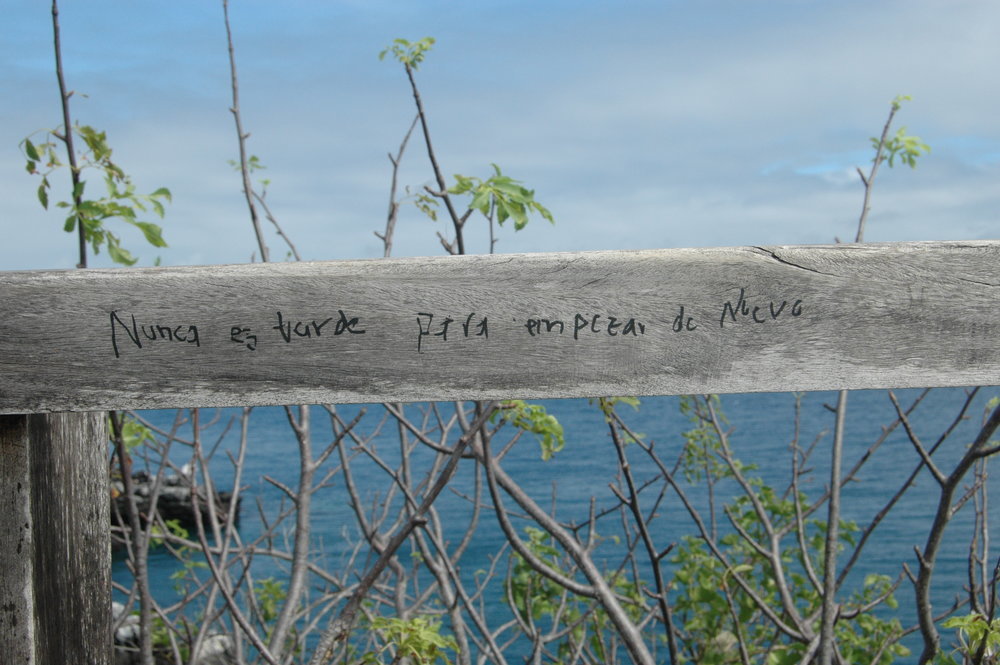 Nunca es tarde para empezar de Nuevo